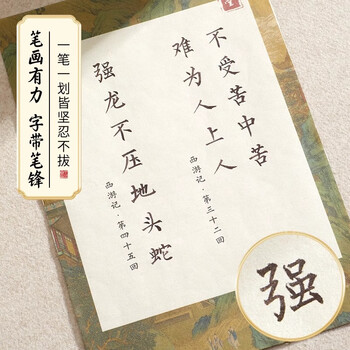 笔画有力 字带笔锋
一笔一划皆坚忍不拔
不受苦中苦
难为人上人
西游记·第三十二回
强龙不压地头蛇
西游记·第四十五回
强